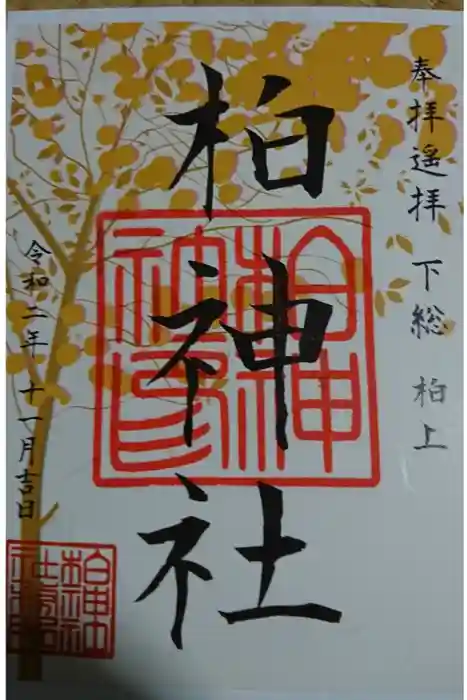 奉拝遥拝 下総 柏上
柏神社
令和二年 十一月吉日
柏神社印